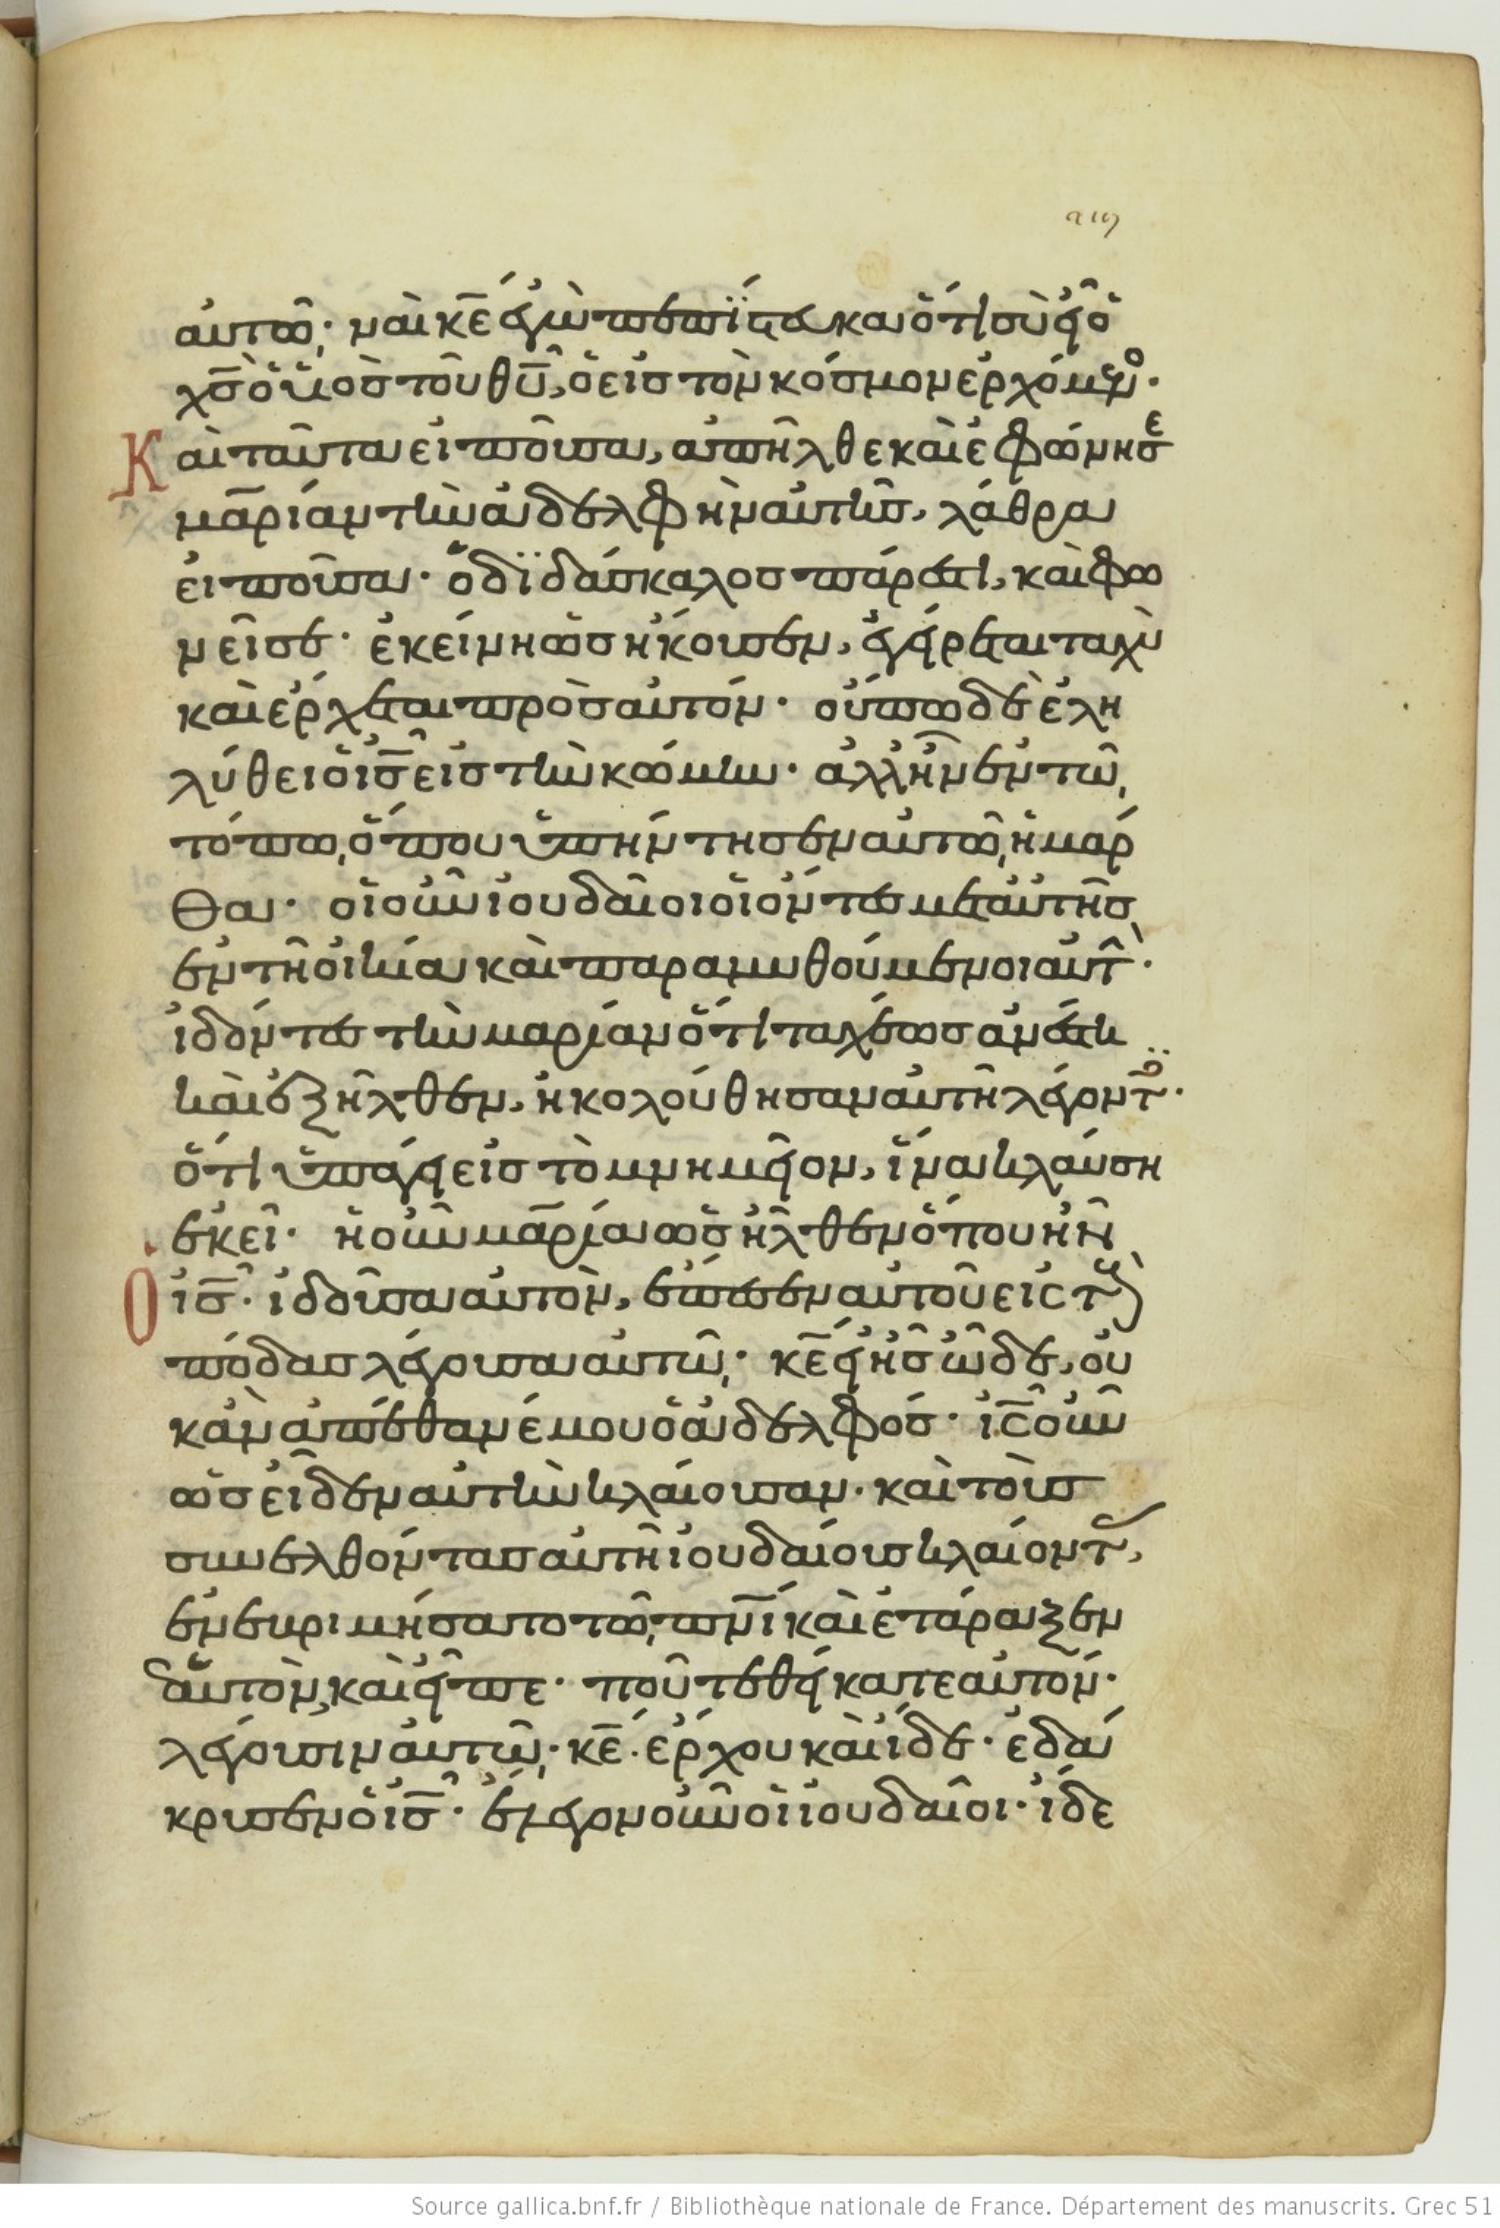 αὐτῶ· ναὶ κε ἐγὼ πεπίστευκα ὅτι σὺ εἶ ὁ
χσ ὁ υἱὸσ τοῦ θυ, ὁ εἰσ τὸν κόσμον ἐρχόμενοσ·
Καὶ ταῦτα εἰποῦσα, ἀπῆλθε καὶ ἐφώνησε
μαριὰμ τὴν ἀδελφὴν αὐτῆσ, λάθρα
εἰποῦσα· ὁ διδάσκαλοσ πάρεστι, καὶ φω
νεῖ σε· ἐκείνη ὡσ ἤκουσεν, ἐγείρεται ταχὺ
καὶ ἔρχεται πρὸσ αὐτόν· οὔπω δὲ ἐλη
λύθει ὁ ισ εἰσ τὴν κώμην· ἀλλ ἦν ἐν τῶ
τόπω, ὅπου ὑπήντησεν αὐτῶ ἡ μάρ
θα· οἱ οὖν ἰουδαῖοι οἱ ὄντεσ μετ αὐτῆσ
ἐν τῆ οἰκία καὶ παραμυθούμενοι αὐτὴν·
ἰδόντεσ τὴν μαρίαν ὅτι ταχέωσ ἀνέστη
καὶ ἐξῆλθεν, ἠκολούθησαν αὐτῆ λέγοντεσ·
ὅτι ὑπάγει εἰσ τὸ μνημεῖον, ἵνα κλαύση
ἐκεῖ· ἡ οὖν μαρία ὡσ ἦλθεν ὅπου ἦν
Ὁ ισ· ἰδοῦσα αὐτὸν, ἔπεσεν αὐτοῦ εἰσ τοὺσ
πόδασ λέγουσα αὐτῶ· κε εἰ ἦσ ὧδε, οὐ
κ ἂν ἀπέθανέ μου ὁ ἀδελφόσ· ισ οὖν
ὡσ εἶδεν αὐτὴν κλαίουσαν· καὶ τοὺσ
συνελθόντασ αὐτῆ ἰουδαίουσ κλαίοντασ,
ἐνεβριμήσατο τῶ πνι καὶ ἐτάραξεν
ἑαυτὸν, καὶ εἶπε· ποῦ τεθείκατε αὐτόν·
λέγουσιν αὐτῶ· κε· ἔρχου καὶ ἴδε· ἐδά
κρυσεν ὁ ισ· ἔλεγον οὖν οἱ ἰουδαῖοι· ἴδε
Source gallica.bnf.fr / Bibliothèque nationale de France. Département des manuscrits. Grec 51